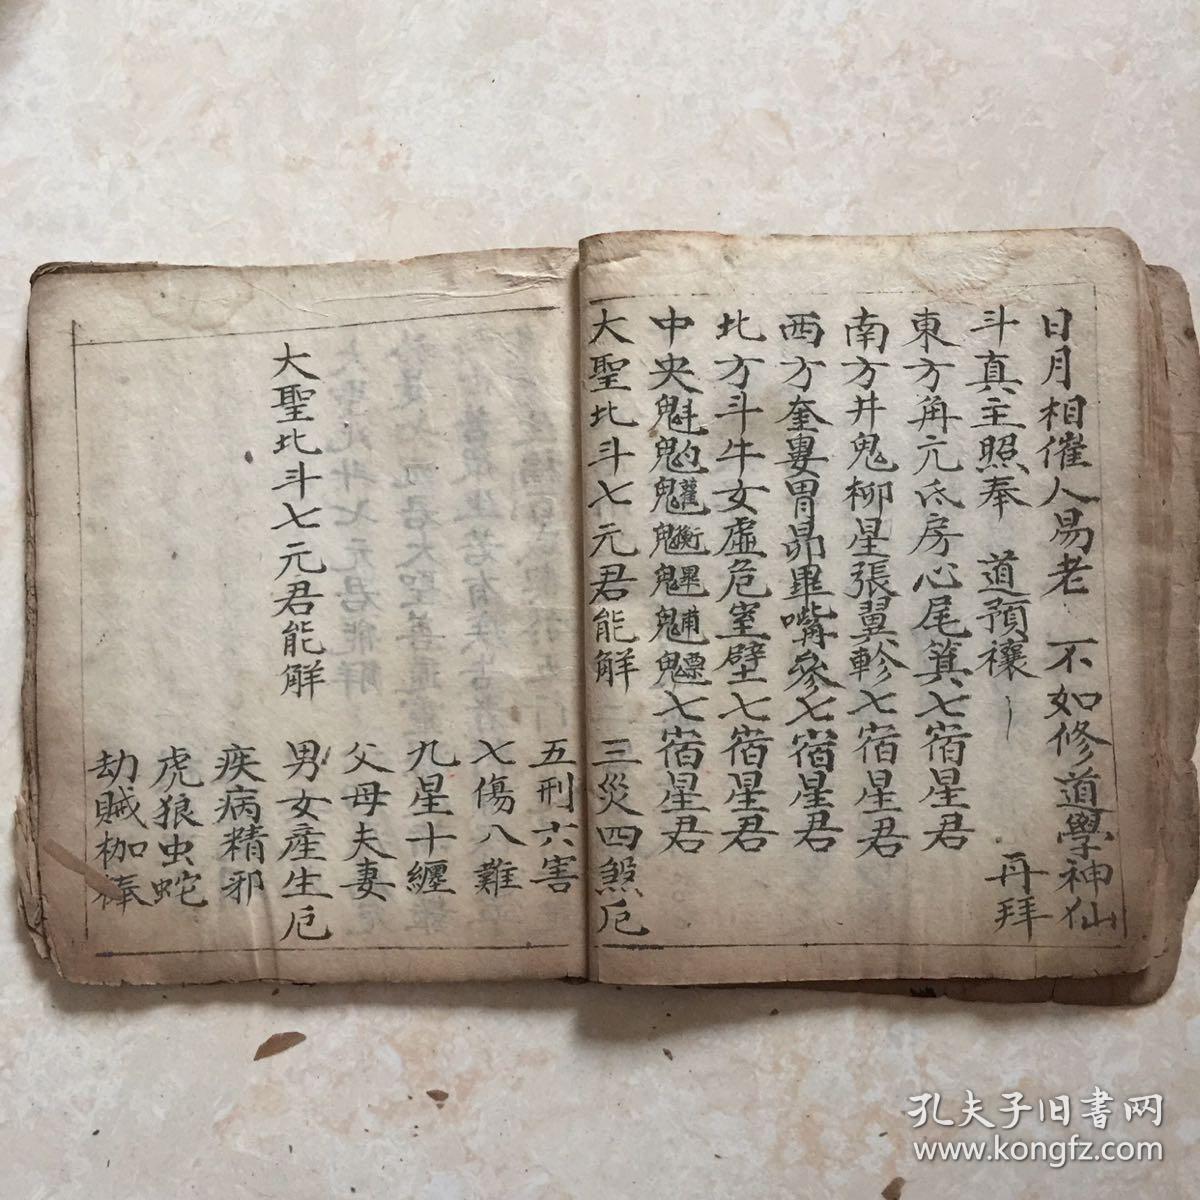 日月相催人易老 不如修道學神仙
斗真主照奉 道預禳 再拜
東方角亢氐房心尾箕七宿星君
南方井鬼柳星張翼軫七宿星君
西方奎婁胃昴畢嘴參七宿星君
北方斗牛女虛危室壁七宿星君
中央魁𩳐䰢魓七宿星君
大聖北斗七元君能解 三災四煞厄
五刑六害
七傷八難
九星十纏
父母夫妻
大聖北斗七元君能解 男女產生厄
疾病精邪
虎狼虫蛇
劫賊枷棒
孔夫子旧书网
www.kongfz.com